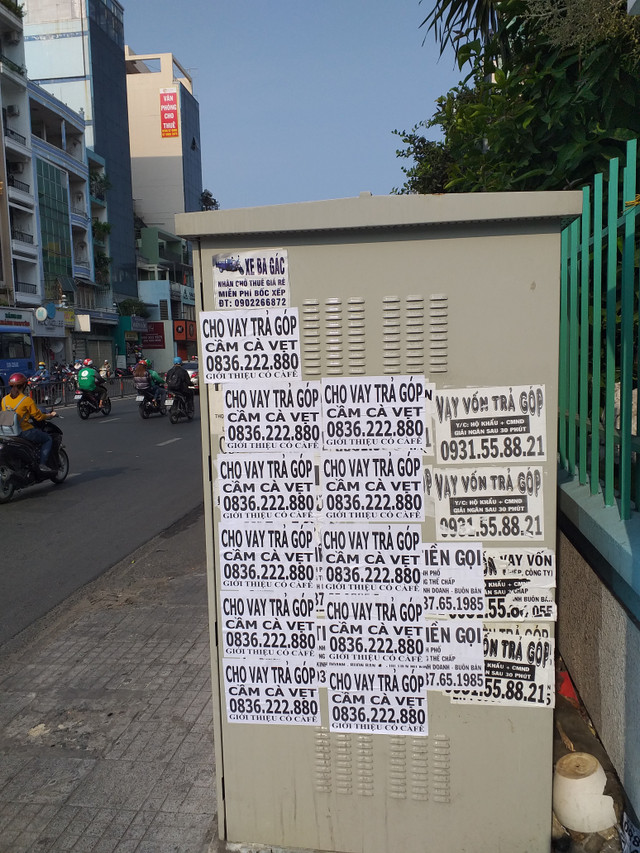 VĂN
PHÒNG
CHO
THUÊ
XE BA GÁC
NHẬN CHỞ THUÊ GIÁ RẺ
MIỄN PHÍ BỐC XẾP
ĐT: 0902266872
CHO VAY TRẢ GÓP
CẦM CÀ VẸT
0836.222.880
GIỚI THIỆU CÓ CAFÉ
CHO VAY TRẢ GÓP
CẦM CÀ VẸT
0836.222.880
GIỚI THIỆU CÓ CAFÉ
CHO VAY TRẢ GÓP
CẦM CÀ VẸT
0836.222.880
GIỚI THIỆU CÓ CAFÉ
VAY VỐN TRẢ GÓP
Y/C: HỘ KHẨU + CMND
GIẢI NGÂN SAU 30 PHÚT
0931.55.88.21
CHO VAY TRẢ GÓP
CẦM CÀ VẸT
0836.222.880
GIỚI THIỆU CÓ CAFÉ
CHO VAY TRẢ GÓP
CẦM CÀ VẸT
0836.222.880
GIỚI THIỆU CÓ CAFÉ
VAY VỐN TRẢ GÓP
Y/C: HỘ KHẨU + CMND
GIẢI NGÂN SAU 30 PHÚT
0931.55.88.21
CHO VAY TRẢ GÓP
CẦM CÀ VẸT
0836.222.880
GIỚI THIỆU CÓ CAFÉ
CHO VAY TRẢ GÓP
CẦM CÀ VẸT
0836.222.880
GIỚI THIỆU CÓ CAFÉ
TIỀN GỌI
PHỐ
THẾ CHẤP
DOANH - BUÔN BÁN
37.65.1985
VAY VỐN
CÔNG TY
+ CMND
55.8
CHO VAY TRẢ GÓP
CẦM CÀ VẸT
0836.222.880
GIỚI THIỆU CÓ CAFÉ
CHO VAY TRẢ GÓP
CẦM CÀ VẸT
0836.222.880
GIỚI THIỆU CÓ CAFÉ
TIỀN GỌI
PHỐ
THẾ CHẤP
DOANH - BUÔN BÁN
37.65.1985
VỐN TRẢ GÓP
KHẨU + CMND
SAU 30 PHÚT
0931.55.88.21
CHO VAY TRẢ GÓP
CẦM CÀ VẸT
0836.222.880
GIỚI THIỆU CÓ CAFÉ
CHO VAY TRẢ GÓP
CẦM CÀ VẸT
0836.222.880
GIỚI THIỆU CÓ CAFÉ